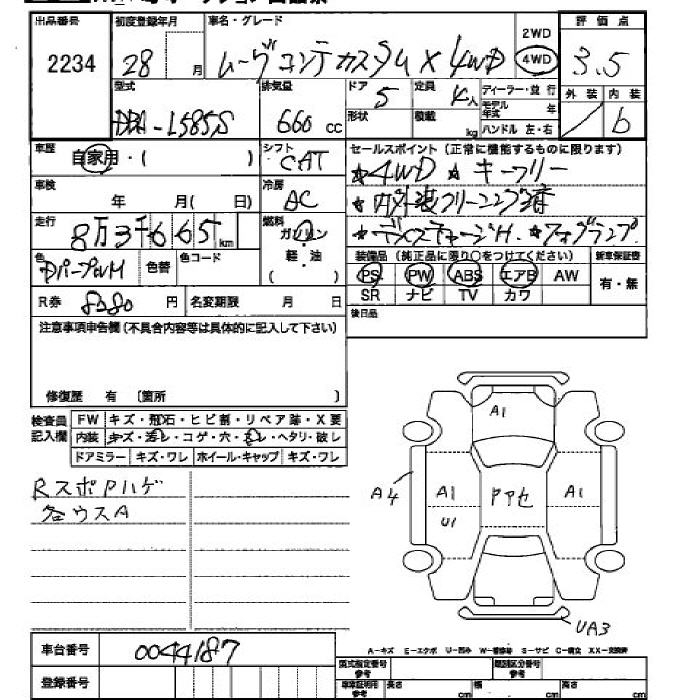 出品番号 初度登録年月 車名・グレード 2WD 評価点
2234 28 月 ムーヴコンテカスタム X 4WD 4WD 3.5
型式 排気量 ドア 5 定員 4人 ディーラー・並行 外装 内装
DBA-L585S 660 cc 形状 積載 kg モデル年式 年 b
ハンドル 左・右
車歴 自家用・( ) シフト CAT セールスポイント(正常に機能するものに限ります)
☆4WD ☆キーフリー
車検 年 月( 日) 冷房 AC ☆内外装クリーニング済
走行 8万3千665km 燃料 ガソリン ☆ディスチャージH. ☆フォグランプ
軽・油
( )
色 DパープルM 色替 色コード
装備品(純正品に限り○をつけてください) 新車保証書
PS PW ABS エアB AW 有・無
SR ナビ TV カワ
R券 8380 円 名変期限 月 日
後日品
注意事項申告欄(不具合内容等は具体的に記入して下さい)
修復歴 有 〔箇所 〕
検査員記入欄 FW キズ・飛石・ヒビ割・リペア跡・X要
内装 キズ・汚レ・コゲ・穴・ハレ・ヘタリ・破レ
ドアミラー キズ・ワレ ホイール・キャップ キズ・ワレ
RスポPハゲ
各ウスA
A1
A4 A1 PアセA1
U1
UA3
車台番号 0044187
登録番号
A-キズ E-エクボ U-凹み W-補修跡 S-サビ C-腐食 XX-交換済
型式指定番号参考 類別区分番号参考
車庫証明用参考 長さ cm 幅 cm 高さ cm